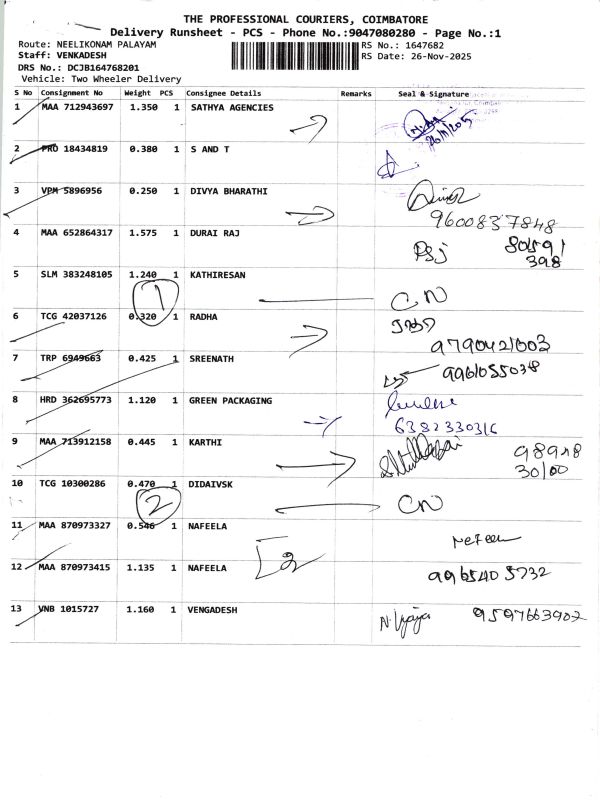 THE PROFESSIONAL COURIERS, COIMBATORE
Delivery Runsheet - PCS - Phone No.:9047080280 - Page No.:1
Route: NEELIKONAM PALAYAM RS No.: 1647682
Staff: VENKADESH RS Date: 26-Nov-2025
DRS No.: DCJB164768201
Vehicle: Two Wheeler Delivery
S No Consignment No Weight PCS Consignee Details Remarks Seal & Signature
1 MAA 712943697 1.350 1 SATHYA AGENCIES
26/11/2025
2 PRO 18434819 0.380 1 S AND T
3 VPM 5896956 0.250 1 DIVYA BHARATHI
9600837848
4 MAA 652864317 1.575 1 DURAI RAJ
5 SLM 383248105 1.240 1 KATHIRESAN
1 CN
6 TCG 42037126 0.320 1 RADHA
9790421003
7 TRP 6949663 0.425 1 SREENATH
9961055038
8 HRD 362695773 1.120 1 GREEN PACKAGING
6382330316
9 MAA 713912158 0.445 1 KARTHI 98948
30100
10 TCG 10300286 0.470 1 DIDAIVSK
2 CN
11 MAA 870973327 0.546 1 NAFEELA
12 MAA 870973415 1.135 1 NAFEELA 2
9965405732
13 VNB 1015727 1.160 1 VENGADESH 9597663902